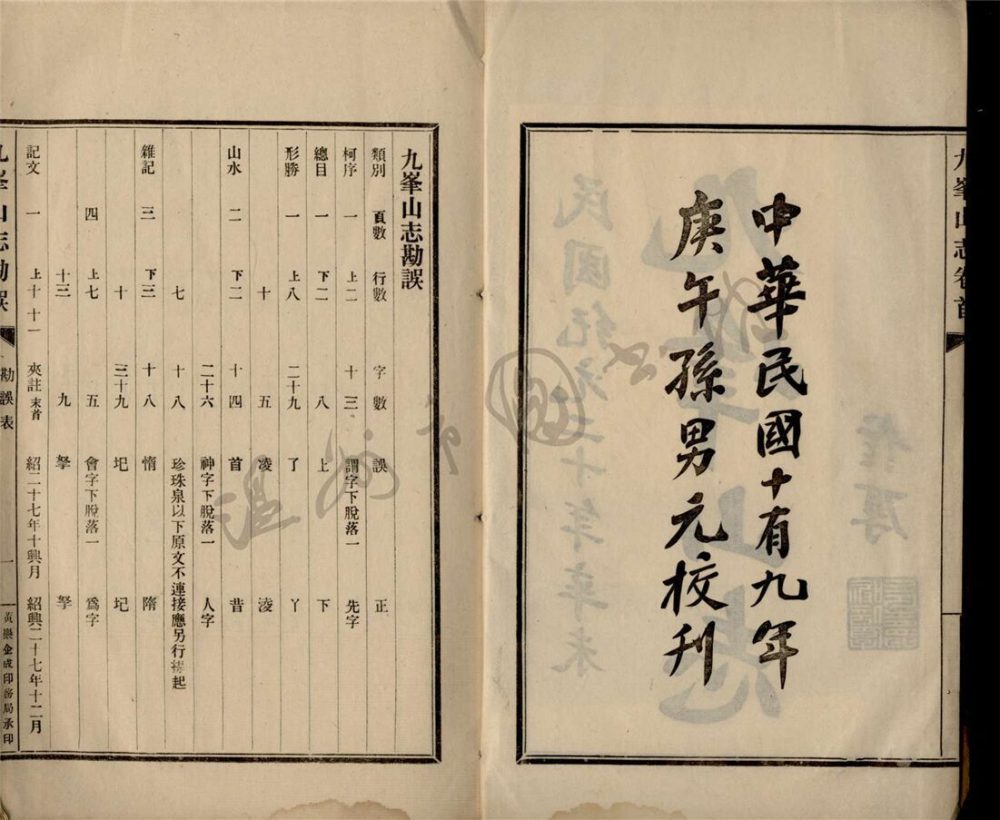 九峯山志卷首
中華民國十有九年
庚午孫男元校刊
九峯山志勘誤
類別 頁數 行數 字數 誤 正
柯序 一 上二 十三 謂字下脫落一 先字
總目 一 下二 八 上 下
形勝 一 上八 二十九 了 丫
十 五 凌 淩
山水 二 下二 十四 首 昔
二十六 神字下脫落一 人字
七 十八 珍珠泉以下原文不連接應另行 起
雜記 三 下三 十八 惰 隋
十 三十九 圯 圮
四 上七 五 會字下脫落一 爲字
十三 九
記文 一 上十 十一 夾註末首 紹二十七年十興月 紹興二十七年十二月
九峯山志勘誤 勘誤表 一 黃巖金成印務局承印
溫州市圖書館